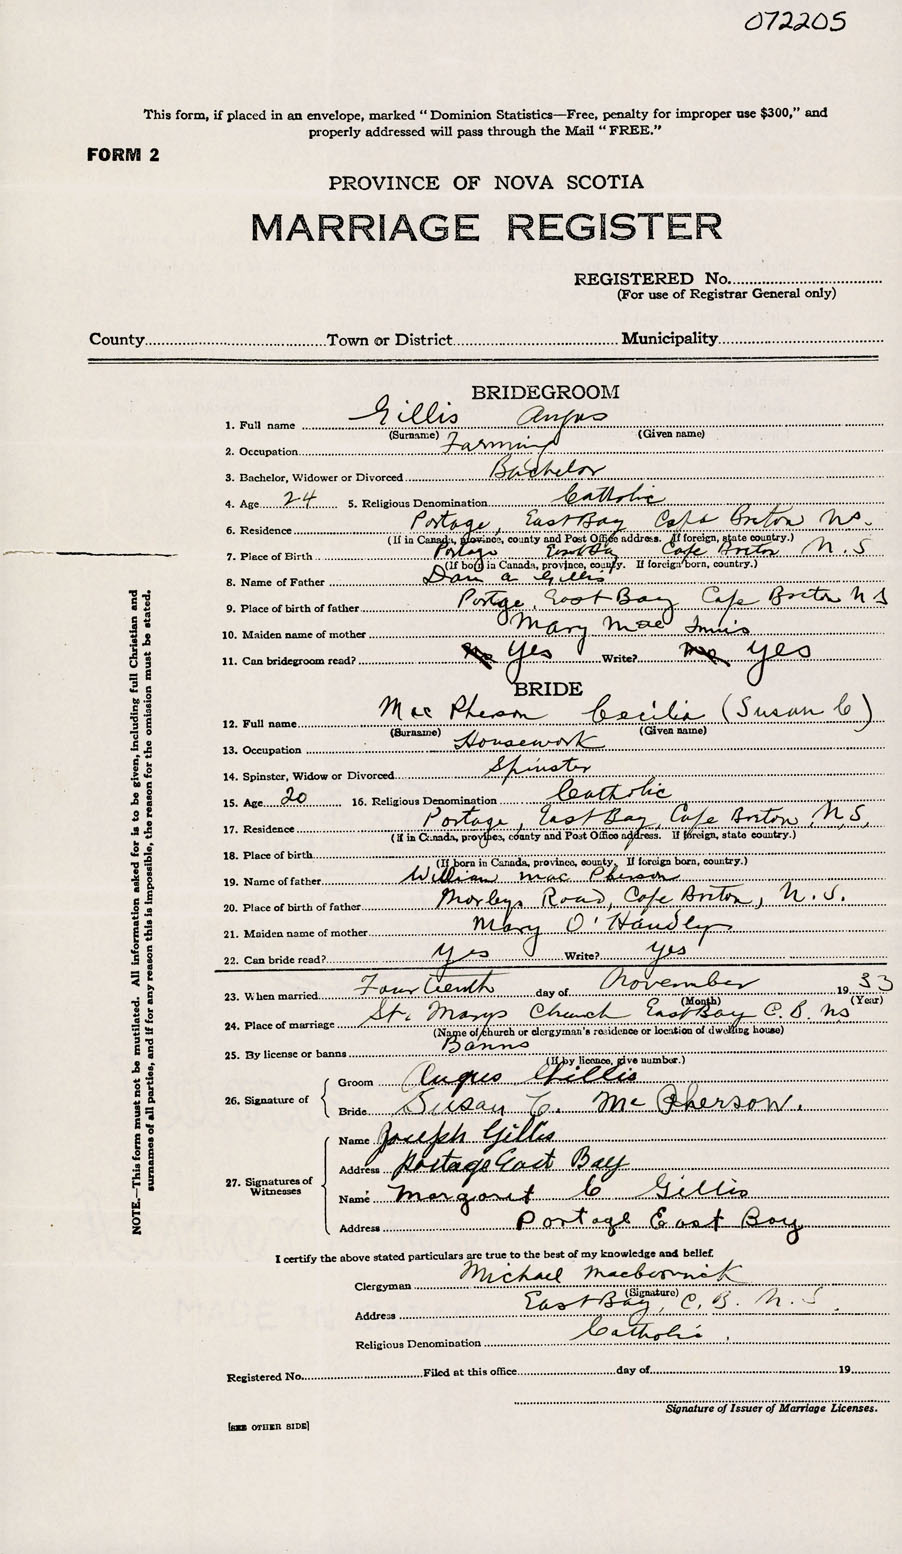 072205
This form, if placed in an envelope, marked "Dominion Statistics—Free, penalty for improper use $300," and
properly addressed will pass through the Mail "FREE."
FORM 2
PROVINCE OF NOVA SCOTIA
MARRIAGE REGISTER
REGISTERED No.
(For use of Registrar General only)
County Town or District Municipality
BRIDEGROOM
1. Full name Gillis Angus
(Surname) (Given name)
2. Occupation Farming
3. Bachelor, Widower or Divorced Bachelor
4. Age 24 5. Religious Denomination Catholic
6. Residence Portage, East Bay Cape Breton N.S.
(If in Canada, province, county and Post Office address. If foreign, state country.)
7. Place of Birth Portage East Bay Cape Breton N.S
(If born in Canada, province, county. If foreign born, country.)
8. Name of Father Dan A Gillis
9. Place of birth of father Portge, East Bay Cape Breton N S
10. Maiden name of mother Mary Mac Innis
11. Can bridegroom read? No Yes Write? No yes
BRIDE
12. Full name Mac Pherson Cecilia (Susan C)
(Surname) (Given name)
13. Occupation Housework
14. Spinster, Widow or Divorced Spinster
15. Age 20 16. Religious Denomination Catholic
17. Residence Portage, East Bay, Cape Breton, N.S.
(If in Canada, province, county and Post Office address. If foreign, state country.)
18. Place of birth
(If born in Canada, province, county. If foreign born, country.)
19. Name of father William Mac Pherson
20. Place of birth of father Morleys Road, Cape Breton, N.S.
21. Maiden name of mother Mary O'Handly
22. Can bride read? yes Write? yes
23. When married Fourteenth day of November 1933
(Month) (Year)
24. Place of marriage St. Marys Church East Bay C.B. NS
(Name of church or clergyman's residence or location of dwelling house)
25. By license or banns Banns
(If by licence, give number.)
26. Signature of
Groom Angus Gillis
Bride Susan C. McPherson.
27. Signatures of Witnesses
Name Joseph Gillis
Address Portage East Bay
Name Margaret C Gillis
Address Portage East Bay
I certify the above stated particulars are true to the best of my knowledge and belief.
Clergyman Michael
(Signature)
Address East Bay, C.B. N.S.
Religious Denomination Catholic.
Registered No. Filed at this office day of 19
Signature of Issuer of Marriage Licenses.
[SEE OTHER SIDE]
NOTE.—This form must not be mutilated. All information asked for is to be given, including full Christian and
surnames of all parties, and if for any reason this is impossible, the reason for the omission must be stated.